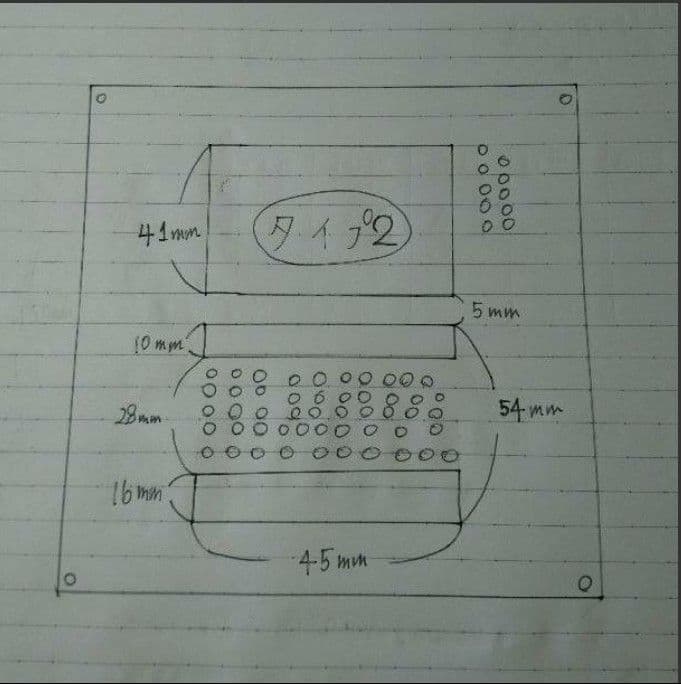 タイプ2
41mm
5mm
10mm
28mm
54mm
16mm
45mm